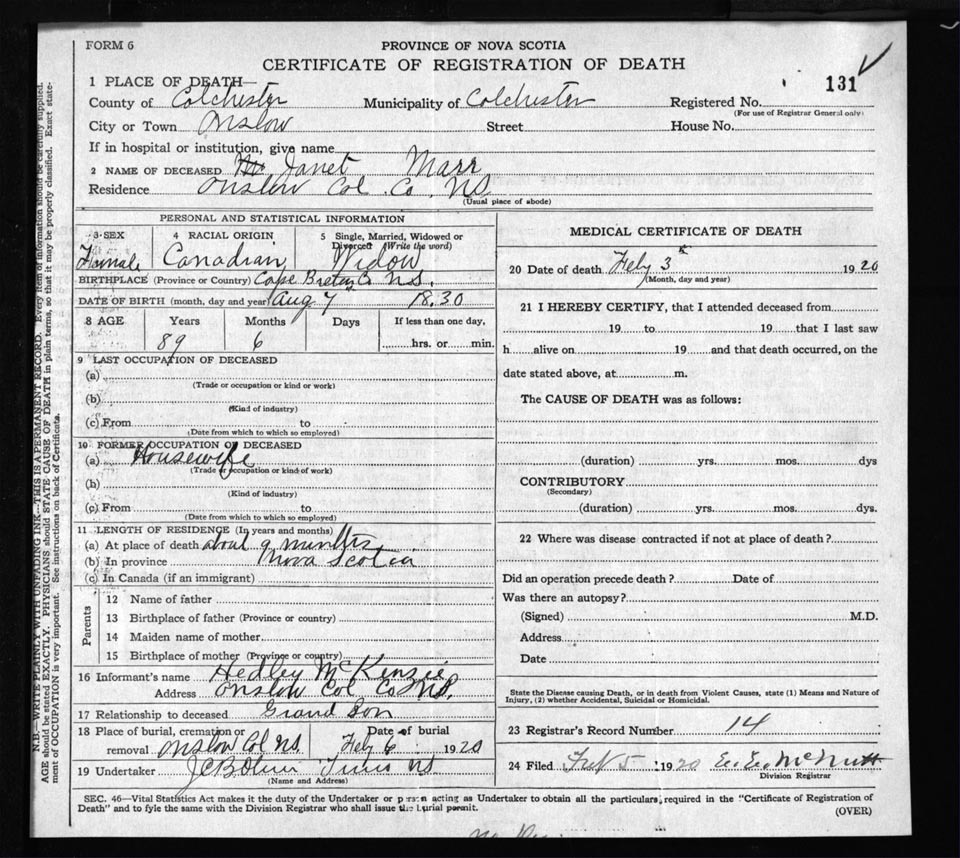 FORM 6
PROVINCE OF NOVA SCOTIA
CERTIFICATE OF REGISTRATION OF DEATH
131
1 PLACE OF DEATH—
County of Colchester Municipality of Colchester Registered No.
(For use of Registrar General only)
City or Town Onslow Street House No.
If in hospital or institution, give name
2 NAME OF DECEASED Janet Marr
Residence Onslow Col. Co. N.S.
(Usual place of abode)
PERSONAL AND STATISTICAL INFORMATION
3 SEX 4 RACIAL ORIGIN 5 Single, Married, Widowed or Divorced (Write the word)
Female Canadian Widow
BIRTHPLACE (Province or Country) Cape Breton Co N.S.
DATE OF BIRTH (month, day and year) Aug 7 1830
8 AGE Years Months Days If less than one day,
89 6 hrs. or min.
9 LAST OCCUPATION OF DECEASED
(a)
(Trade or occupation or kind or work)
(b)
(Kind of industry)
(c) From to
(Date from which to which so employed)
10 FORMER OCCUPATION OF DECEASED
(a) Housewife
(Trade or occupation or kind of work)
(b)
(Kind of industry)
(c) From to
(Date from which to which so employed)
11 LENGTH OF RESIDENCE (In years and months)
(a) At place of death about 9 months
(b) In province Nova Scotia
(c) In Canada (if an immigrant)
Parents
12 Name of father
13 Birthplace of father (Province or country)
14 Maiden name of mother
15 Birthplace of mother (Province or country)
16 Informant's name Hedley McKenzie
Address Onslow Col Co N.S.
17 Relationship to deceased Grand Son
18 Place of burial, cremation or Date of burial
removal Onslow Col N.S. Feby 6 1920
19 Undertaker Truro NS
(Name and Address)
MEDICAL CERTIFICATE OF DEATH
20 Date of death Feby 3 1920
(Month, day and year)
21 I HEREBY CERTIFY, that I attended deceased from
19 to 19 that I last saw
h alive on 19 and that death occurred, on the
date stated above, at m.
The CAUSE OF DEATH was as follows:
(duration) yrs. mos. dys
CONTRIBUTORY
(Secondary)
(duration) yrs. mos. dys.
22 Where was disease contracted if not at place of death?
Did an operation precede death? Date of
Was there an autopsy?
(Signed) M.D.
Address
Date
State the Disease causing Death, or in death from Violent Causes, state (1) Means and Nature of
Injury, (2) whether Accidental, Suicidal or Homicidal.
23 Registrar's Record Number 14
24 Filed Feb 5 1920 McNutt
Division Registrar
SEC. 46—Vital Statistics Act makes it the duty of the Undertaker or person acting as Undertaker to obtain all the particulars required in the "Certificate of Registration of
Death" and to fyle the same with the Division Registrar who shall issue the burial permit.
(OVER)
N.B.—WRITE PLAINLY WITH UNFADING INK—THIS IS A PERMANENT RECORD. Every item of information should be carefully supplied.
AGE should be stated EXACTLY. PHYSICIANS should STATE CAUSE OF DEATH in plain terms, so that it may be properly classified. Exact state-
ment of OCCUPATION is very important. See instructions on back of Certificate.